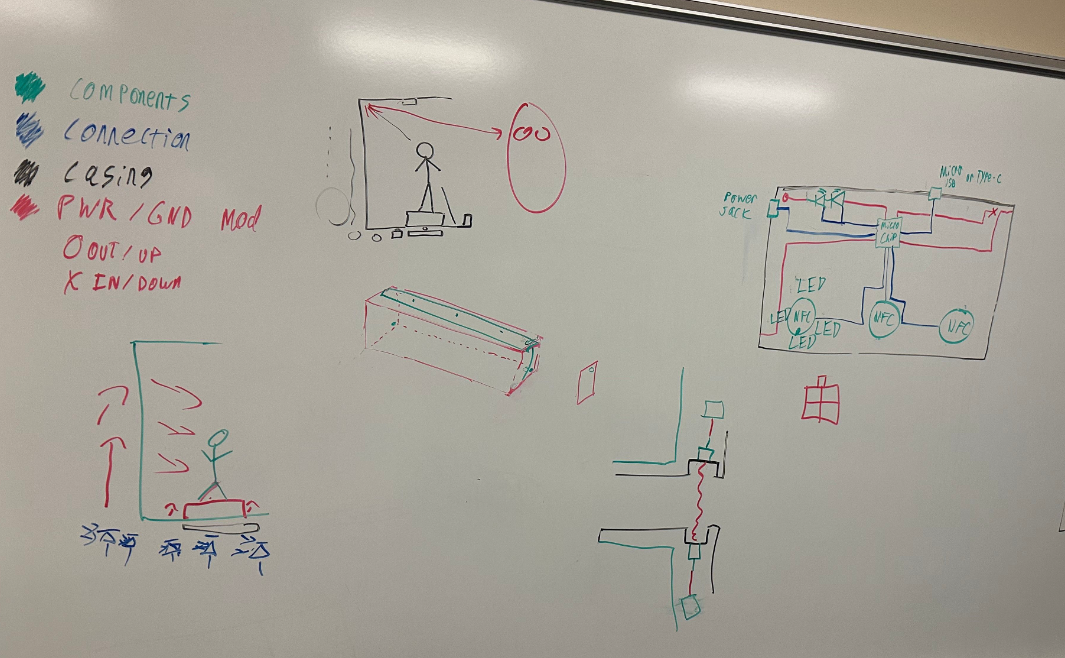 Components
Connection
Casing
PWR / GND Mod
O OUT/UP
X IN/DOWN
Power
Jack
Micro
USB or Type-C
Micro
Chip
LED
LED
NFC
LED
LED
NFC
NFC